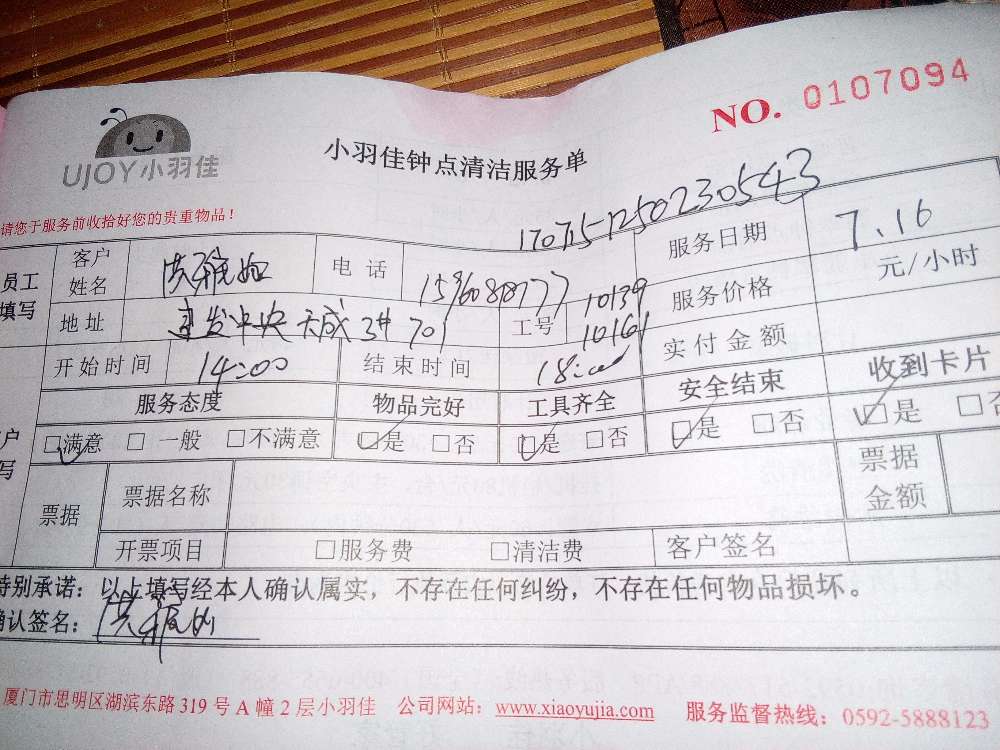 NO. 0107094
UJOY小羽佳
小羽佳钟点清洁服务单
请您于服务前收拾好您的贵重物品！
1707151250230543
员工填写 客户姓名 洪雅 电话 服务日期 7.16
地址 建发中央天成3# 701 工号 10139 10161 服务价格 元/小时
开始时间 14:00 结束时间 18:00 实付金额
服务态度 物品完好 工具齐全 安全结束 收到卡片
□满意 □一般 □不满意 □是 □否 □是 □否 □是 □否 □是 □否
票据 票据名称 票据金额
开票项目 □服务费 □清洁费 客户签名
特别承诺：以上填写经本人确认属实，不存在任何纠纷，不存在任何物品损坏。
确认签名：洪雅
厦门市思明区湖滨东路319号A幢2层小羽佳 公司网站：www.xiaoyujia.com 服务监督热线：0592-5888123